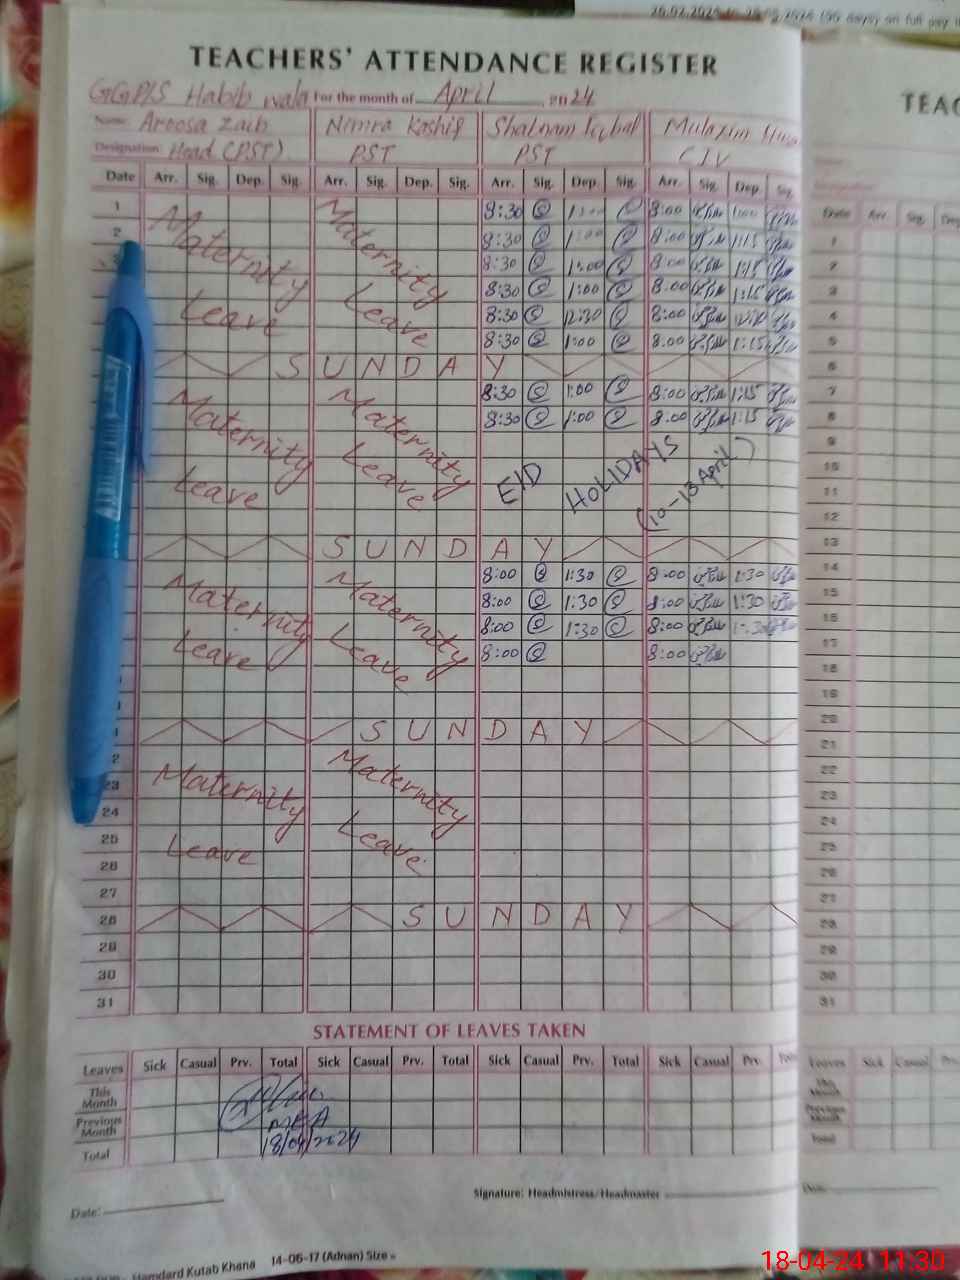 26.02.2024 to days) on full pay
TEACHERS' ATTENDANCE REGISTER
GGP/S Habib wala For the month of April, 2024
Name: Areesa Zaib Nimra Kashif Shabnam Iqbal Mulazim
Designation: Head (PST) PST PST CIV
Date Arr. Sig. Dep. Sig. Arr. Sig. Dep. Sig. Arr. Sig. Dep. Sig. Arr. Sig. Dep. Sig.
1 Maternity Maternity 8:30 8:00
2 8:30 1:00 8:00 1:15
8:30 1:00 8:00 1:15
Leave Leave 8:30 1:00 8:00 1:15
8:30 12:30 8:00
8:30 1:00 8:00 1:15
SUNDAY
Maternity Maternity 8:30 1:00 8:00 1:15
8:30 1:00 8:00 1:15
Leave Leave EID HOLIDAYS (10-13 April)
SUNDAY
Maternity Maternity 8:00 1:30 8:00 1:30
8:00 1:30 8:00 1:30
Leave Leave 8:00 1:30 8:00 1:30
8:00 8:00
SUNDAY
Maternity Maternity
23
24
25 Leave Leave
26
27
28 SUNDAY
29
30
31
STATEMENT OF LEAVES TAKEN
Leaves Sick Casual Prv. Total Sick Casual Prv. Total Sick Casual Prv. Total Sick Casual Prv.
This Month
Previous Month MEA
Total 18/04/2024
Signature: Headmistress/Headmaster
Date:
Hamdard Kutab Khana 14-06-17 (Adnan) Size
TEAC
Date Arr. Sig. Dep
1
2
3
4
5
6
7
8
9
10
11
12
13
14
15
16
17
18
19
20
21
22
23
24
25
26
27
28
29
30
31
Leaves Sick Casual Prv.
This Month
Previous Month
Total
Date:
18-04-24 11:30